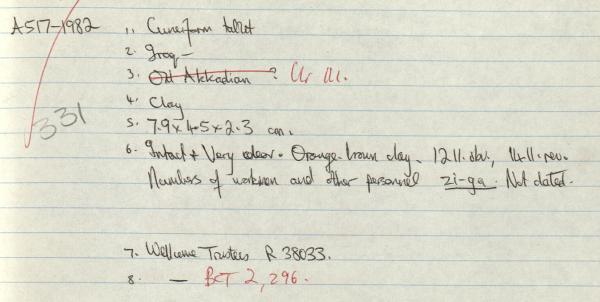 A517-1982 1. Cuneiform tablet
2. Iraq -
3. Old Akkadian ? Ur III.
331
4. Clay
5. 7.9 x 4.5 x 2.3 cm.
6. Intact + Very clear. Orange-brown clay. 12 ll. obv., 14 ll. rev.
Numbers of workmen and other personnel zi-ga. Not dated.
7. Wellcome Trustees R 38033.
8. — BCT 2, 296.